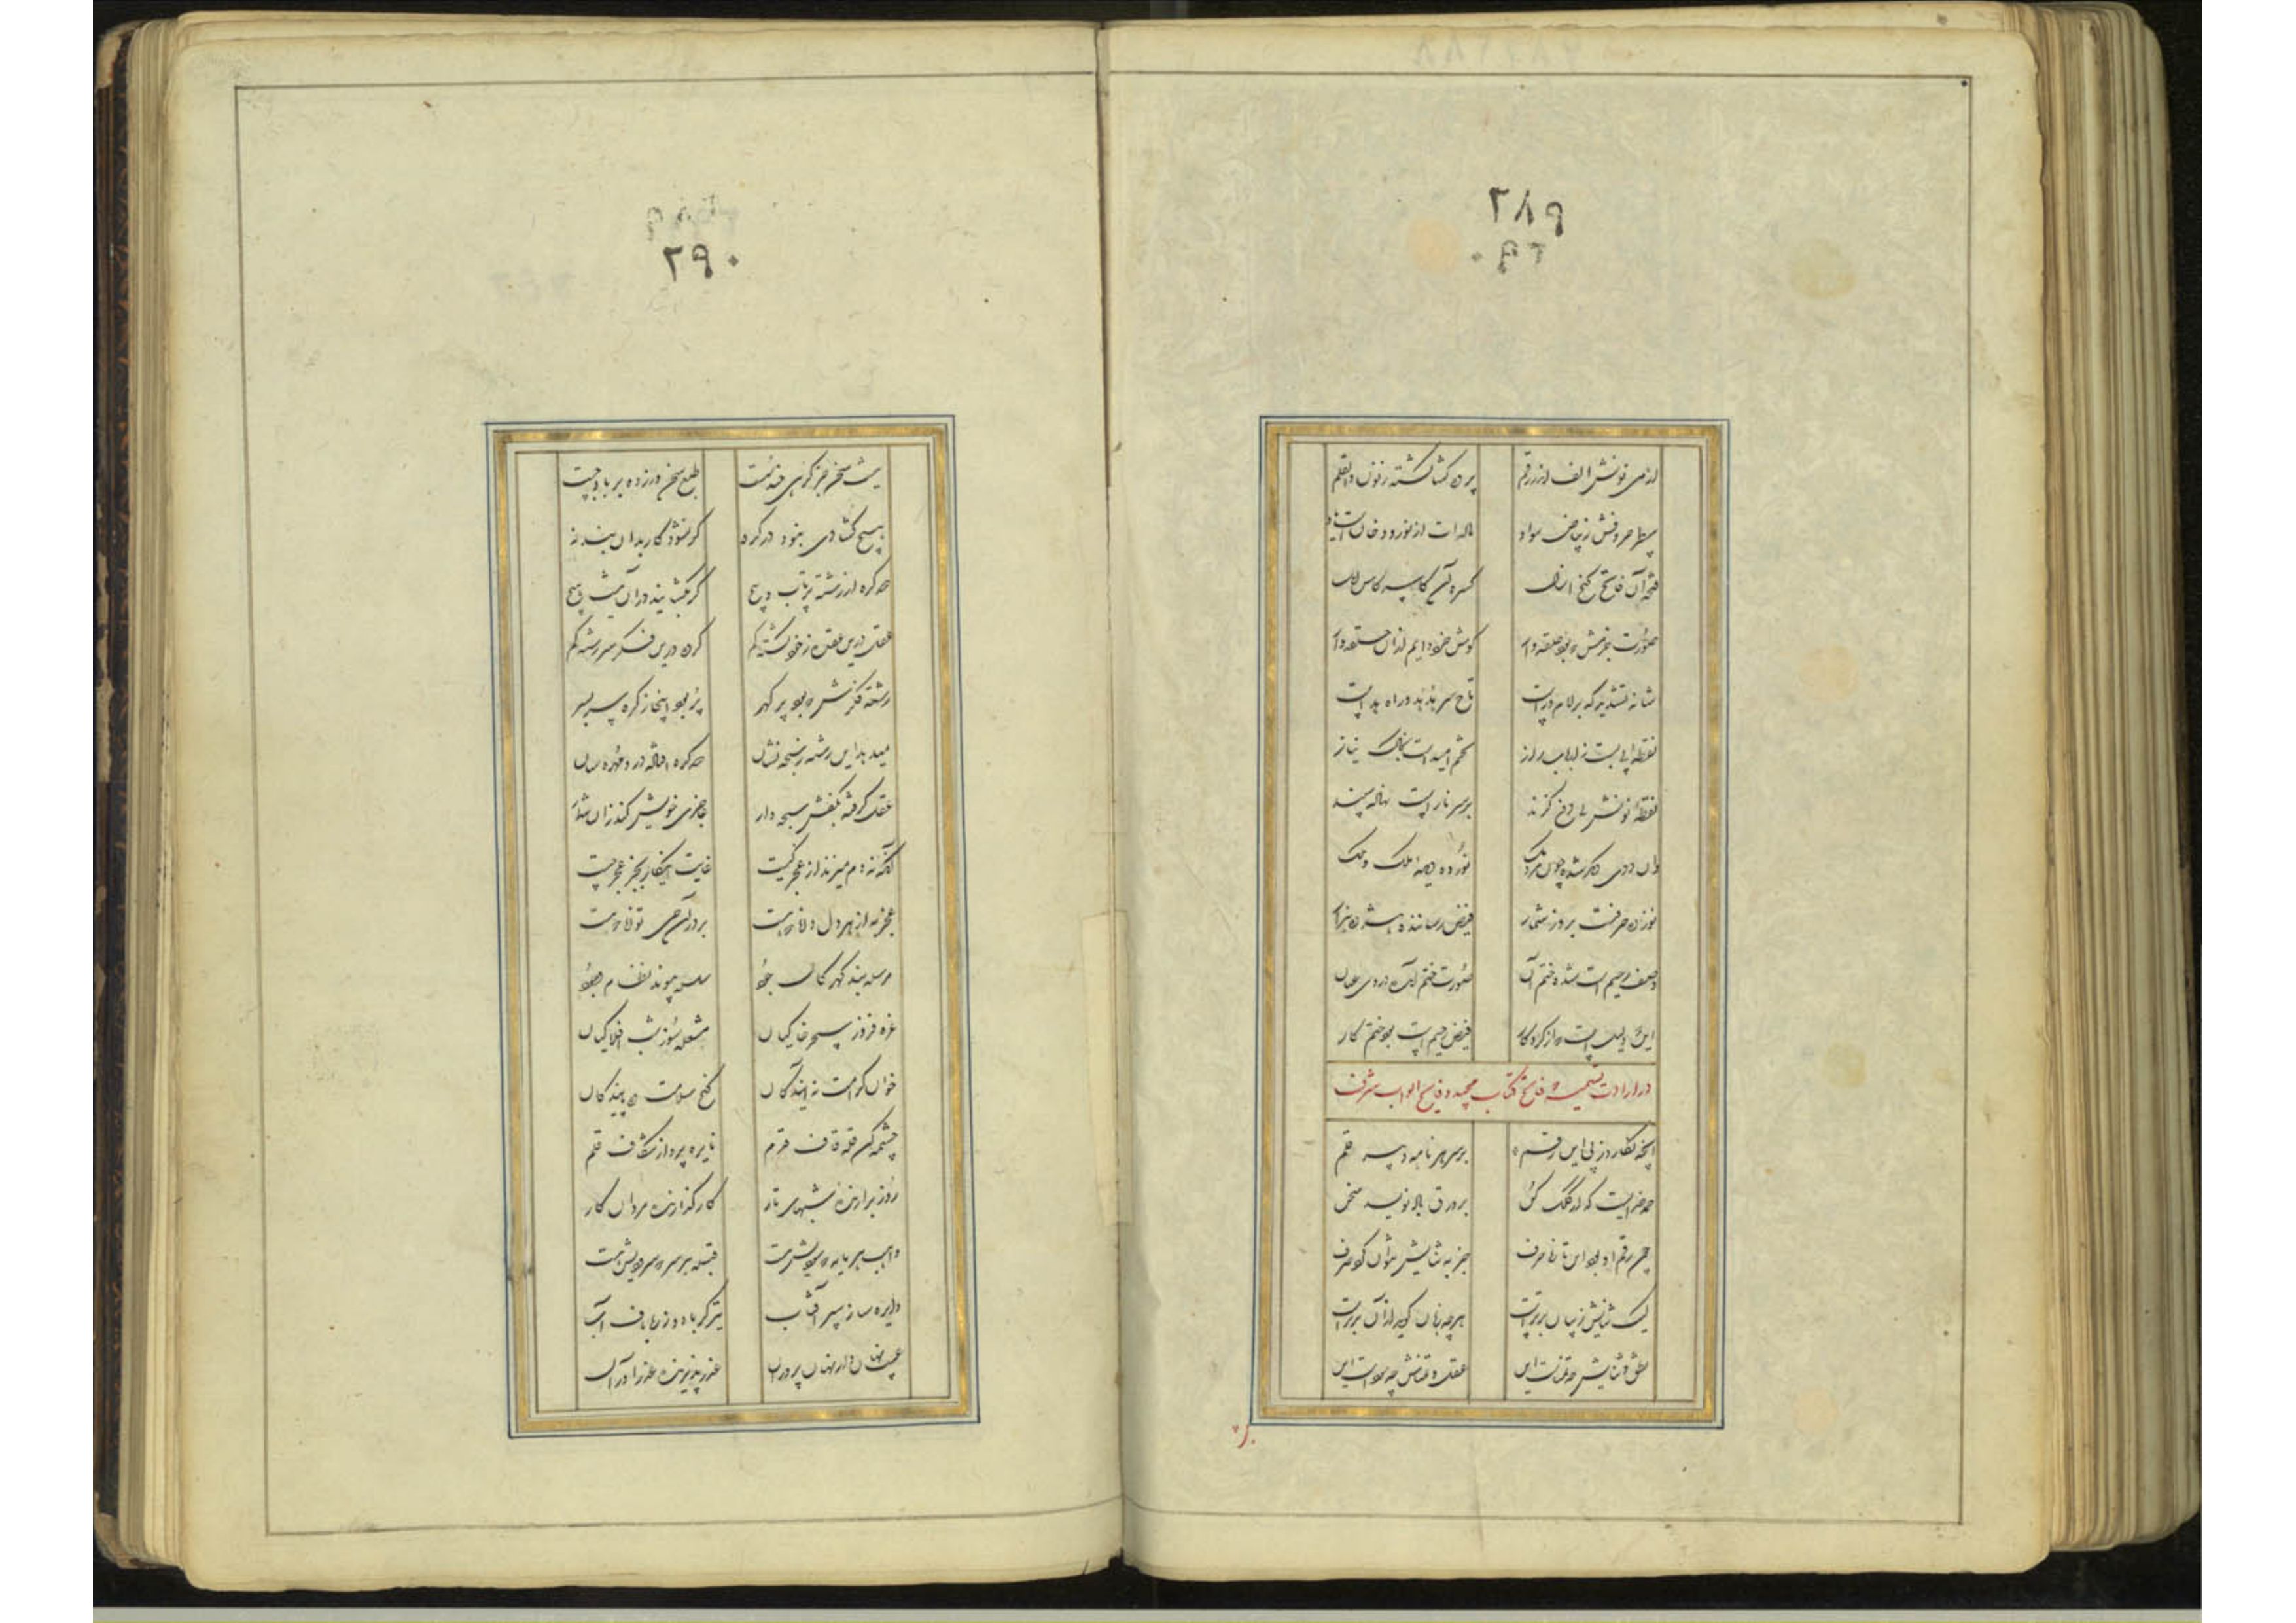 ۲۸۹
از می نونش الف از زر رقم پرده گشا گشته ز نون والقلم
سطر حروفش ز بیاض سواد
فتحه آن فاتح گنج کسره آن
صورت جزمش که بود حلقه وار گوش خرد دایم از آن حلقه دار
شانه تشدید که بر لام دراست تاج سر هدهد در راه
تخم امید است بخاک نیاز
نقطه نونش پی دفع گزند بر سر نار است نهاده سپند
نور ده دیده ملک و ملک
نوزده حرفست بروز شمار فیض رساننده به هژده هزار
وصف رحیم است شده ختم آن صورت ختم آمده در وی عیان
این دلیل است که از کردگار فیض رحیم است بود ختم کار
در ارادت تسمیه که فاتح کتاب مجید و فاتح ابواب شرف
آنچه نگارد ز پی این رقم بر سر هر نامه دبیر قلم
حمد خدایست که از کلک کن بر ورق باد نویسد سخن
چون رقم او بود این تازه حرف جز به ثنایش نتوان کرد صرف
لیک ثنایش ز بیان برتر است هر چه زبان گوید از آن برتر است
نطق و ثنایش چه تمناست این عقل و تمناش چه سوداست این
۲۹۰
نیست سخن جز گرهی چند سست طبع سخنور زده بر باد چست
هیچ گشادی نبود در گره گر نشود کار بدان بسته به
صد گره از رشته پرتاب و پیچ گر بگشایند در آن نیست هیچ
عقل درین عقده ز خود گشته گم کرده درین فکر سر رشته گم
رشته فکرش که بود پر گهر پر بود اینجا ز گره سر بسر
میدهد این رشته ز سبحه نشان صد گره افتاده در و مهره سان
عقل گرفته بکفش سبحه وار عاجزی خویش کند زان شمار
آنکه نه دم میزند از عجز کیست غایت اینکار بجز عجز چیست
عجز به از هر دل دانا که هست بر در آن حی توانا که هست
مرسله بند گهر کان جود سلسله پیوند نظام وجود
غره فروز سحر خاکیان مشعله سوز شب افلاکیان
خوان کرامت نه آیندگان گنج سلامت ده پایندگان
چشمه کن قله قاف قدم نایره پرداز شکاف قلم
روز برآرنده شبهای تار کارگذارنده مردان کار
واهب هر مایه که جودیش هست قبله هر سر که سجودیش هست
دایره ساز سپر آفتاب تیزگر باد و زره باف آب
عیب نهان دار هنر پروران عذر پذیرنده عذر آوران